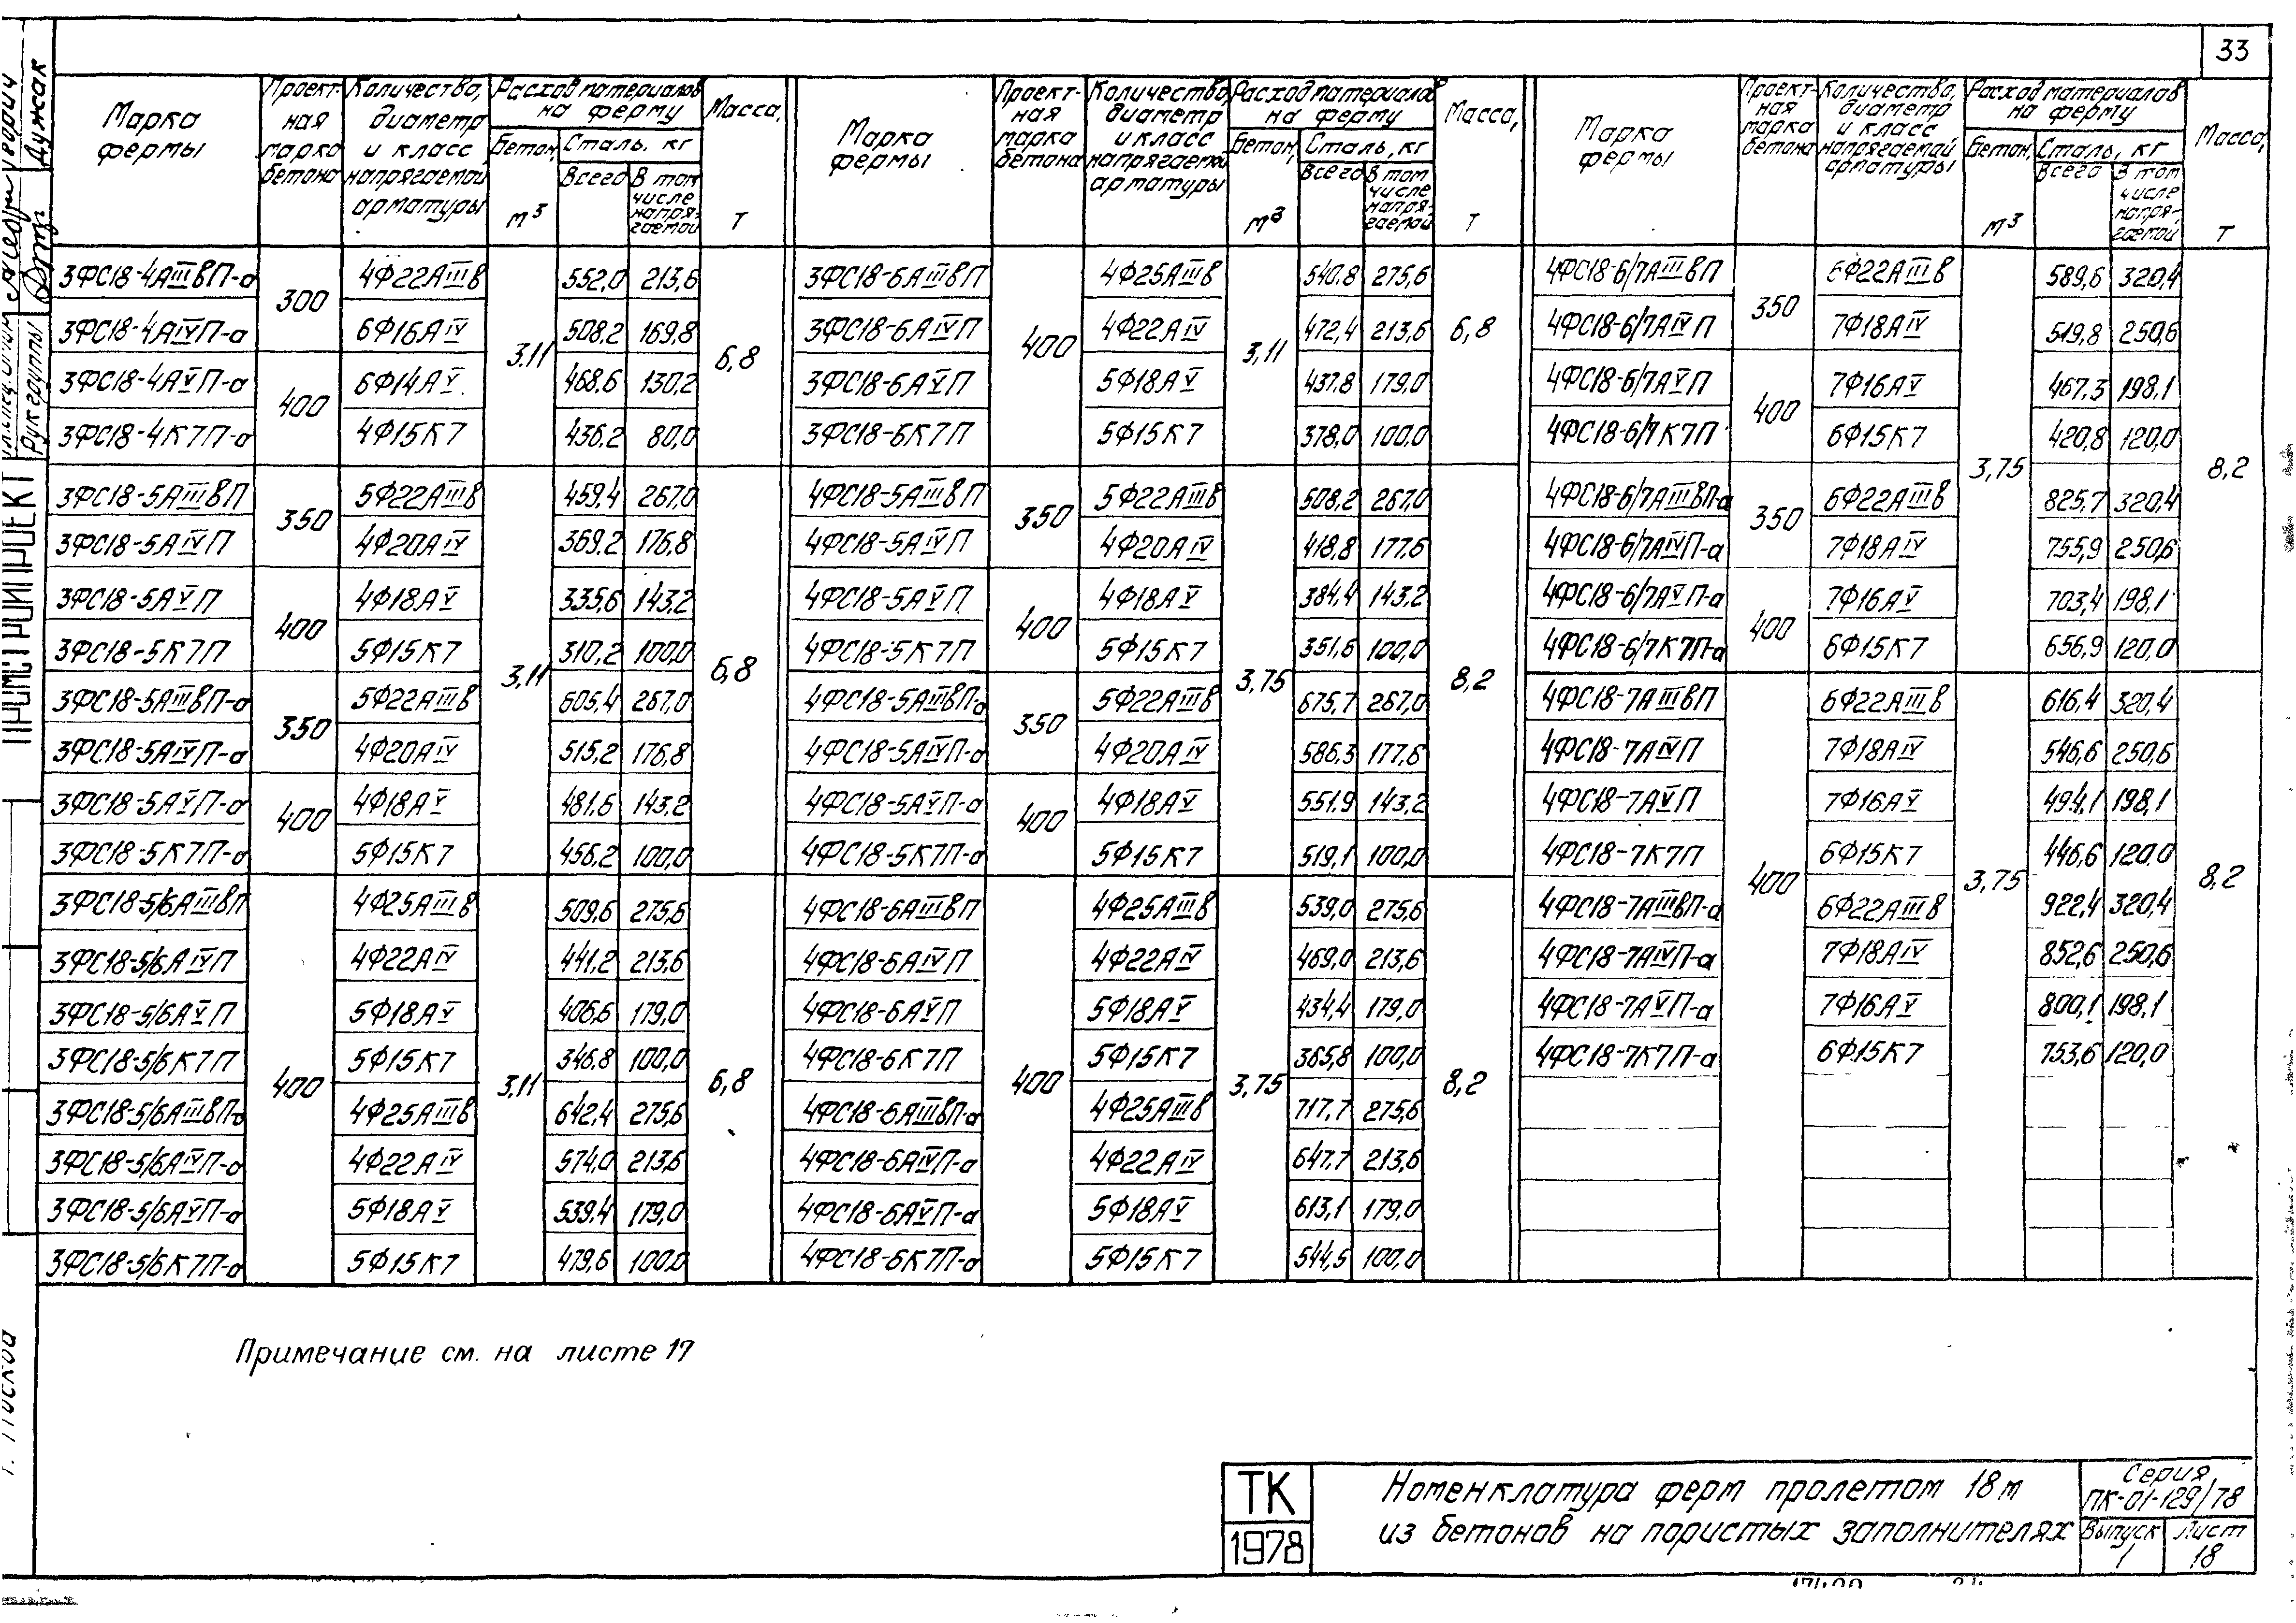 33
Марка фермы | Проектная марка бетона | Количество, диаметр и класс напрягаемой арматуры | Расход материалов на ферму | Масса, т
Бетон, м³ | Сталь, кг
Всего | В том числе напрягаемой
3ФС18-4АIIIвП-а | 300 | 4Ф22АIIIв | 3,11 | 552,0 | 213,6 | 6,8
3ФС18-4АIVП-а | 6Ф16АIV | 508,2 | 169,8
3ФС18-4АVП-а | 400 | 6Ф14АV | 468,6 | 130,2
3ФС18-4К7П-а | 4Ф15К7 | 436,2 | 80,0
3ФС18-5АIIIвП | 350 | 5Ф22АIIIв | 3,11 | 459,4 | 267,0 | 6,8
3ФС18-5АIVП | 4Ф20АIV | 369,2 | 176,8
3ФС18-5АVП | 400 | 4Ф18АV | 335,6 | 143,2
3ФС18-5К7П | 5Ф15К7 | 310,2 | 100,0
3ФС18-5АIIIвП-а | 350 | 5Ф22АIIIв | 605,4 | 267,0
3ФС18-5АIVП-а | 4Ф20АIV | 515,2 | 176,8
3ФС18-5АVП-а | 400 | 4Ф18АV | 481,6 | 143,2
3ФС18-5К7П-а | 5Ф15К7 | 456,2 | 100,0
3ФС18-5/6АIIIвП | 400 | 4Ф25АIIIв | 3,11 | 509,6 | 275,6 | 6,8
3ФС18-5/6АIVП | 4Ф22АIV | 441,2 | 213,6
3ФС18-5/6АVП | 5Ф18АV | 406,6 | 179,0
3ФС18-5/6К7П | 5Ф15К7 | 346,8 | 100,0
3ФС18-5/6АIIIвП-а | 4Ф25АIIIв | 642,4 | 275,6
3ФС18-5/6АIVП-а | 4Ф22АIV | 574,0 | 213,6
3ФС18-5/6АVП-а | 5Ф18АV | 539,4 | 179,0
3ФС18-5/6К7П-а | 5Ф15К7 | 479,6 | 100,0
Марка фермы | Проектная марка бетона | Количество, диаметр и класс напрягаемой арматуры | Расход материалов на ферму | Масса, т
Бетон, м³ | Сталь, кг
Всего | В том числе напрягаемой
3ФС18-6АIIIвП | 400 | 4Ф25АIIIв | 3,11 | 540,8 | 275,6 | 6,8
3ФС18-6АIVП | 4Ф22АIV | 472,4 | 213,6
3ФС18-6АVП | 5Ф18АV | 437,8 | 179,0
3ФС18-6К7П | 5Ф15К7 | 378,0 | 100,0
4ФС18-5АIIIвП | 350 | 5Ф22АIIIв | 3,75 | 508,2 | 267,0 | 8,2
4ФС18-5АIVП | 4Ф20АIV | 418,8 | 177,6
4ФС18-5АVП | 400 | 4Ф18АV | 384,4 | 143,2
4ФС18-5К7П | 5Ф15К7 | 351,6 | 100,0
4ФС18-5АIIIвП-а | 350 | 5Ф22АIIIв | 675,7 | 267,0
4ФС18-5АIVП-а | 4Ф20АIV | 586,3 | 177,6
4ФС18-5АVП-а | 400 | 4Ф18АV | 551,9 | 143,2
4ФС18-5К7П-а | 5Ф15К7 | 519,1 | 100,0
4ФС18-6АIIIвП | 400 | 4Ф25АIIIв | 3,75 | 539,0 | 275,6 | 8,2
4ФС18-6АIVП | 4Ф22АIV | 469,0 | 213,6
4ФС18-6АVП | 5Ф18АV | 434,4 | 179,0
4ФС18-6К7П | 5Ф15К7 | 365,8 | 100,0
4ФС18-6АIIIвП-а | 4Ф25АIIIв | 717,7 | 275,6
4ФС18-6АIVП-а | 4Ф22АIV | 647,7 | 213,6
4ФС18-6АVП-а | 5Ф18АV | 613,1 | 179,0
4ФС18-6К7П-а | 5Ф15К7 | 544,5 | 100,0
Марка фермы | Проектная марка бетона | Количество, диаметр и класс напрягаемой арматуры | Расход материалов на ферму | Масса, т
Бетон, м³ | Сталь, кг
Всего | В том числе напрягаемой
4ФС18-6/7АIIIвП | 350 | 6Ф22АIIIв | 3,75 | 589,6 | 320,4 | 8,2
4ФС18-6/7АIVП | 7Ф18АIV | 519,8 | 250,6
4ФС18-6/7АVП | 400 | 7Ф16АV | 467,3 | 198,1
4ФС18-6/7К7П | 6Ф15К7 | 420,8 | 120,0
4ФС18-6/7АIIIвП-а | 350 | 6Ф22АIIIв | 825,7 | 320,4
4ФС18-6/7АIVП-а | 7Ф18АIV | 755,9 | 250,6
4ФС18-6/7АVП-а | 400 | 7Ф16АV | 703,4 | 198,1
4ФС18-6/7К7П-а | 6Ф15К7 | 656,9 | 120,0
4ФС18-7АIIIвП | 400 | 6Ф22АIIIв | 3,75 | 616,4 | 320,4 | 8,2
4ФС18-7АIVП | 7Ф18АIV | 546,6 | 250,6
4ФС18-7АVП | 7Ф16АV | 494,1 | 198,1
4ФС18-7К7П | 6Ф15К7 | 446,6 | 120,0
4ФС18-7АIIIвП-а | 6Ф22АIIIв | 922,4 | 320,4
4ФС18-7АIVП-а | 7Ф18АIV | 852,6 | 250,6
4ФС18-7АVП-а | 7Ф16АV | 800,1 | 198,1
4ФС18-7К7П-а | 6Ф15К7 | 753,6 | 120,0
Примечание см. на листе 17
ТК
1978
Номенклатура ферм пролетом 18м
из бетонов на пористых заполнителях
Серия
ПК-01-129/78
Выпуск
1
Лист
18
Рук группы
Дужак